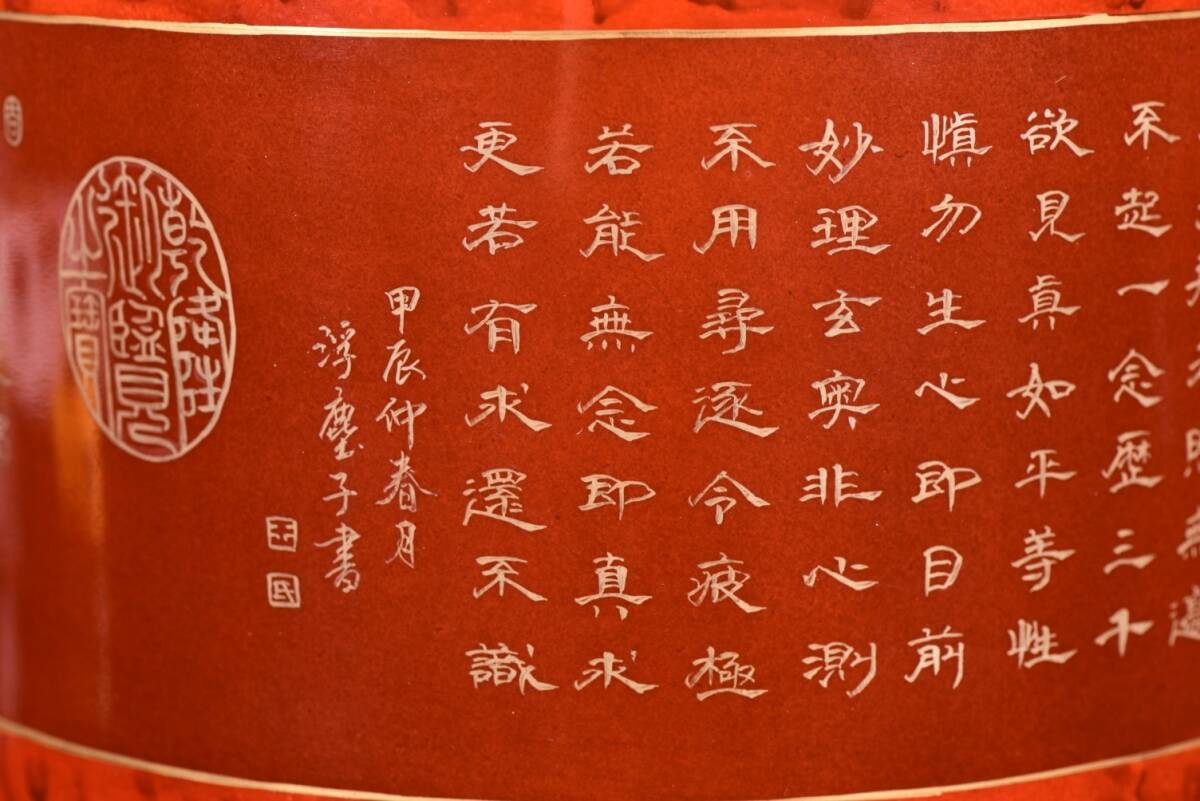 不起一念歷三千
欲見真如平等性
慎勿生心即目前
妙理玄奧非心測
不用尋逐令疲極
若能無念即真求
更若有求還不識
甲辰仲春月
浮塵子書
乾隆御覽之寶